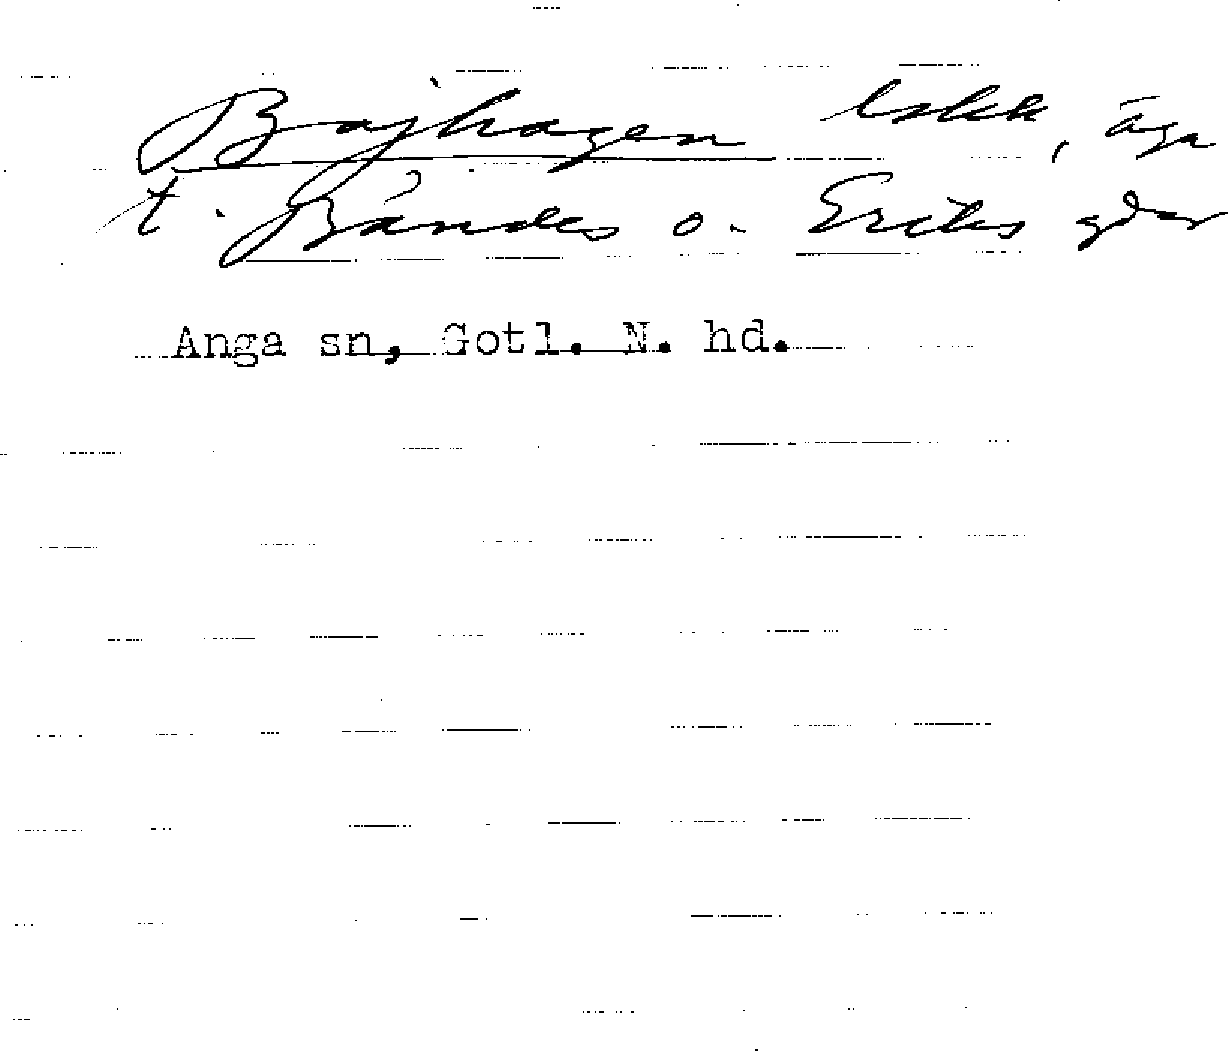 Bajhagen lskk, äga
t. Bändes o. Eriks gdar
Anga sn, Gotl. N. hd.